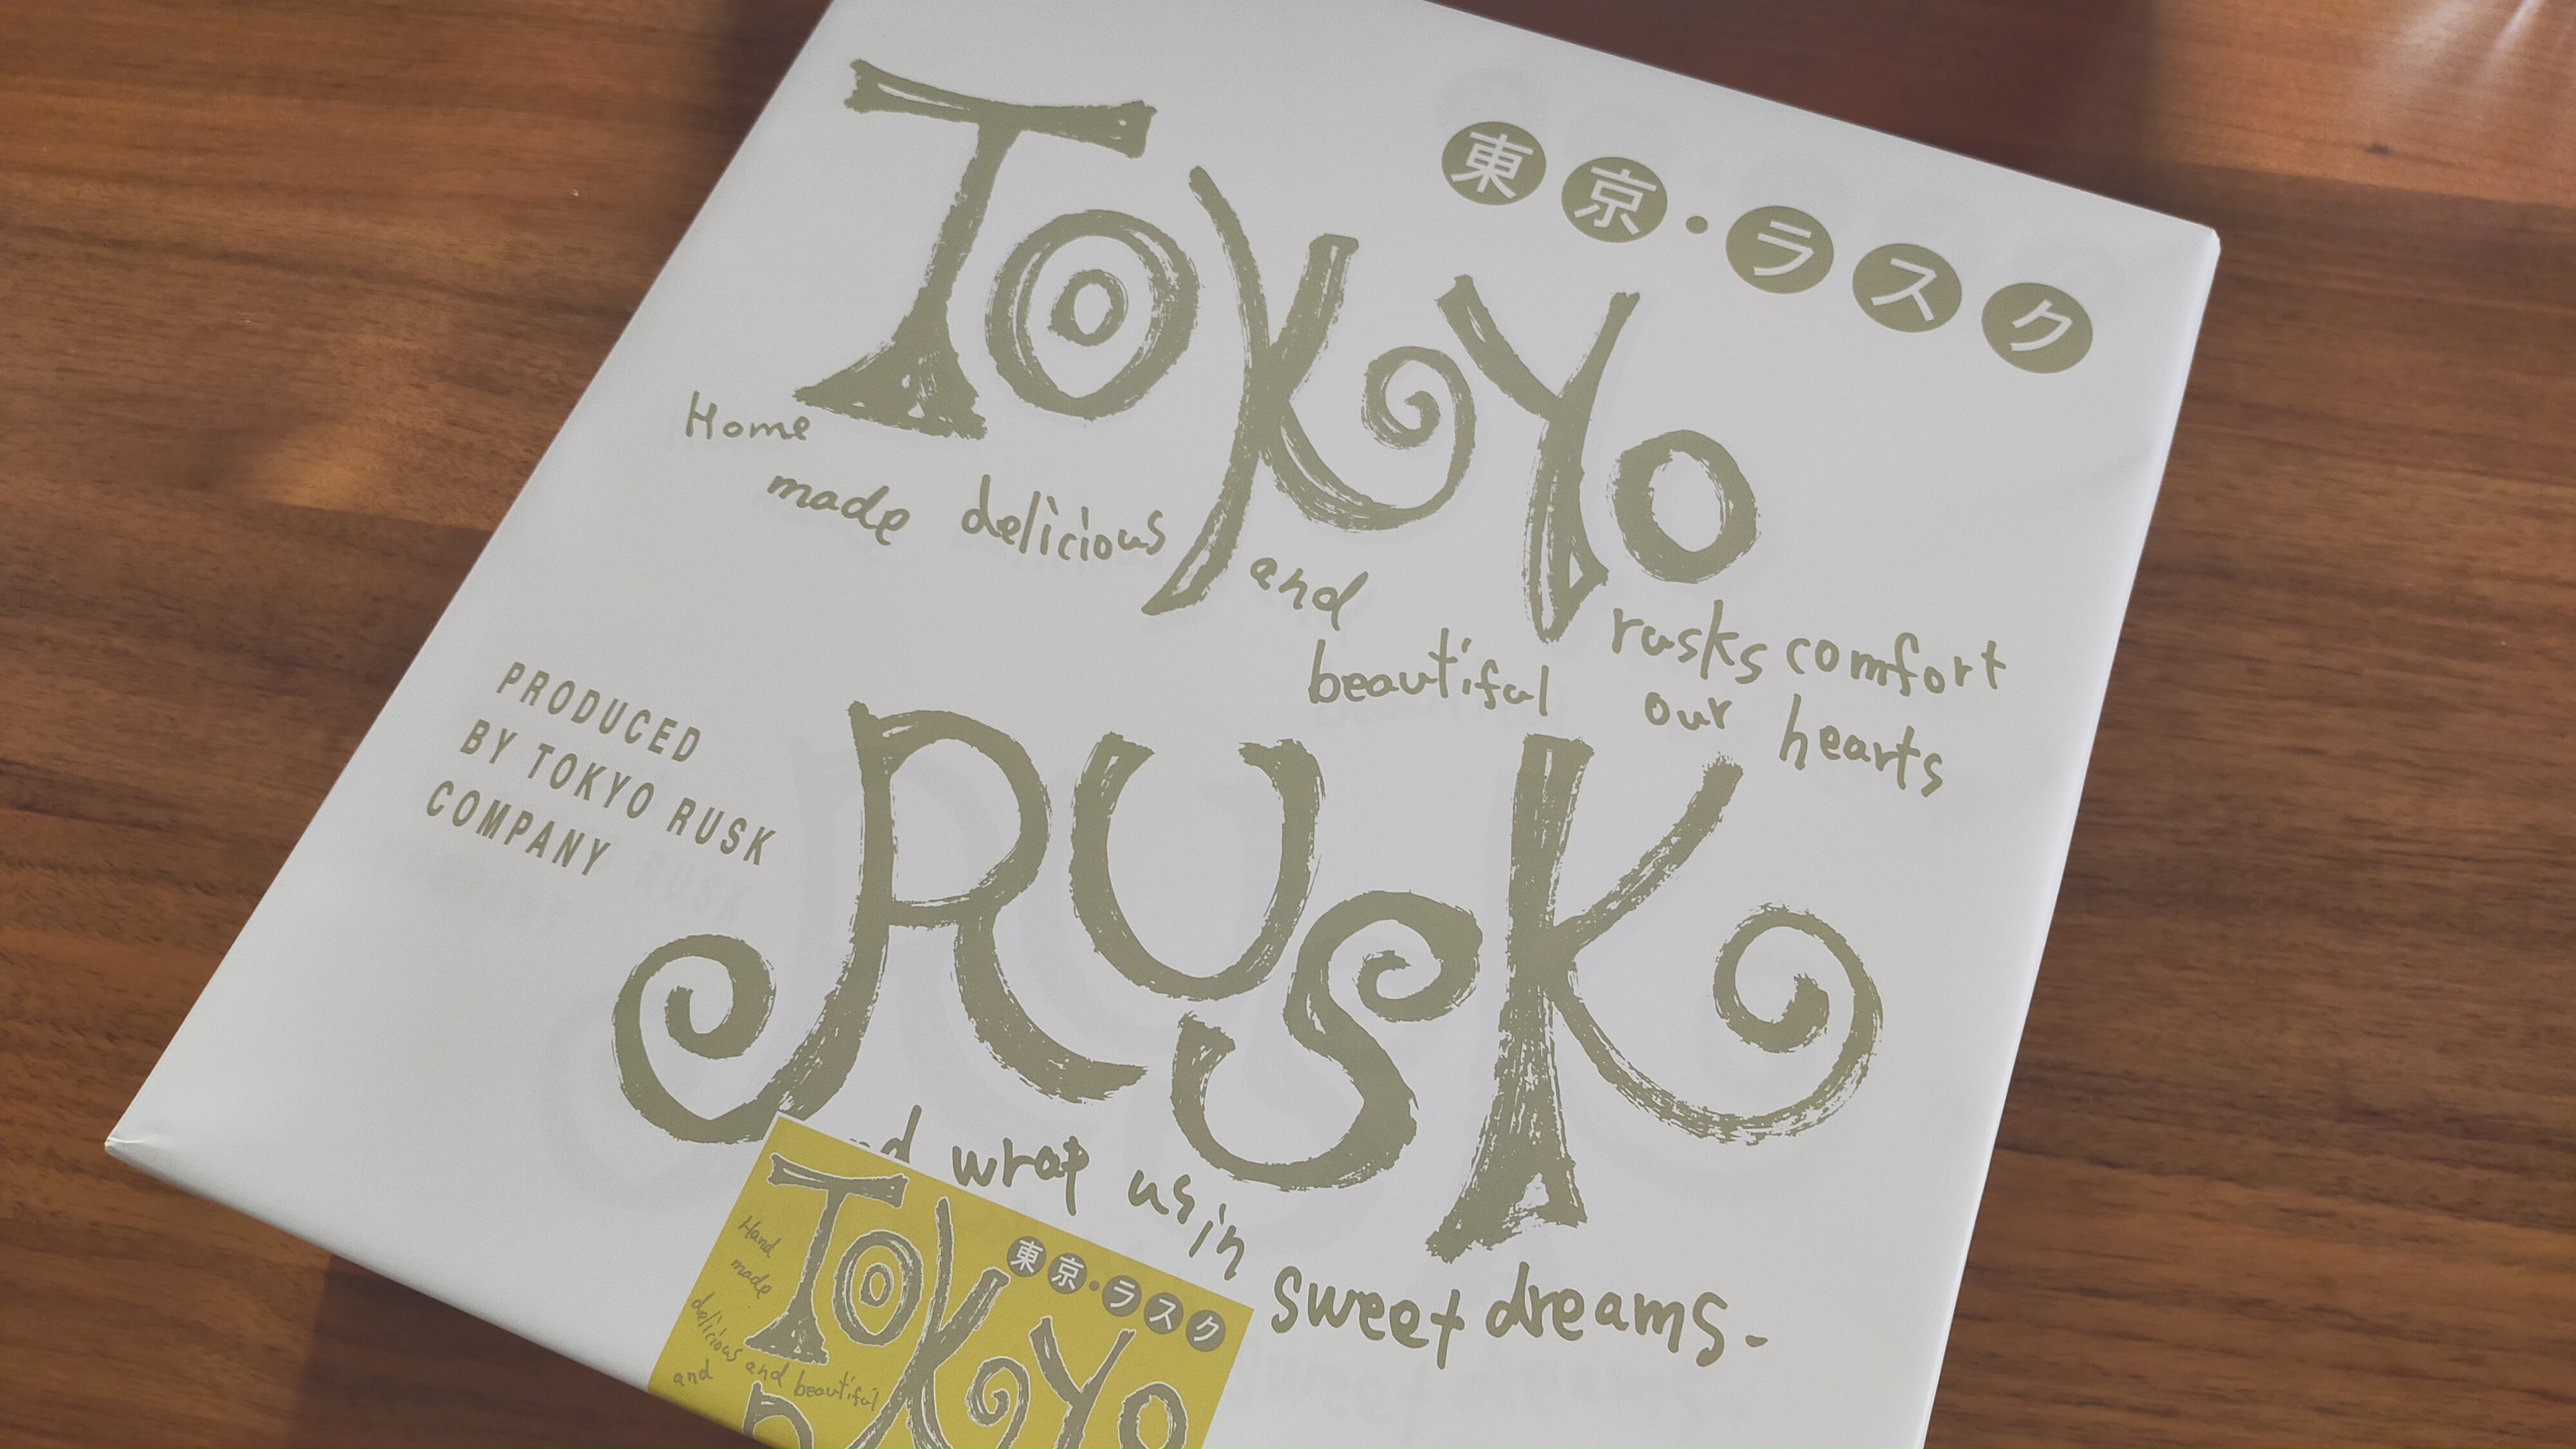 東京・ラスク
TOKYO
Home
made delicious
and
beautiful
rusks comfort
our hearts
PRODUCED
BY TOKYO RUSK
COMPANY
RUSK
wrap us in
sweet dreams.
東京・ラスク
TOKYO
Hand
made
delicious and beautiful
and